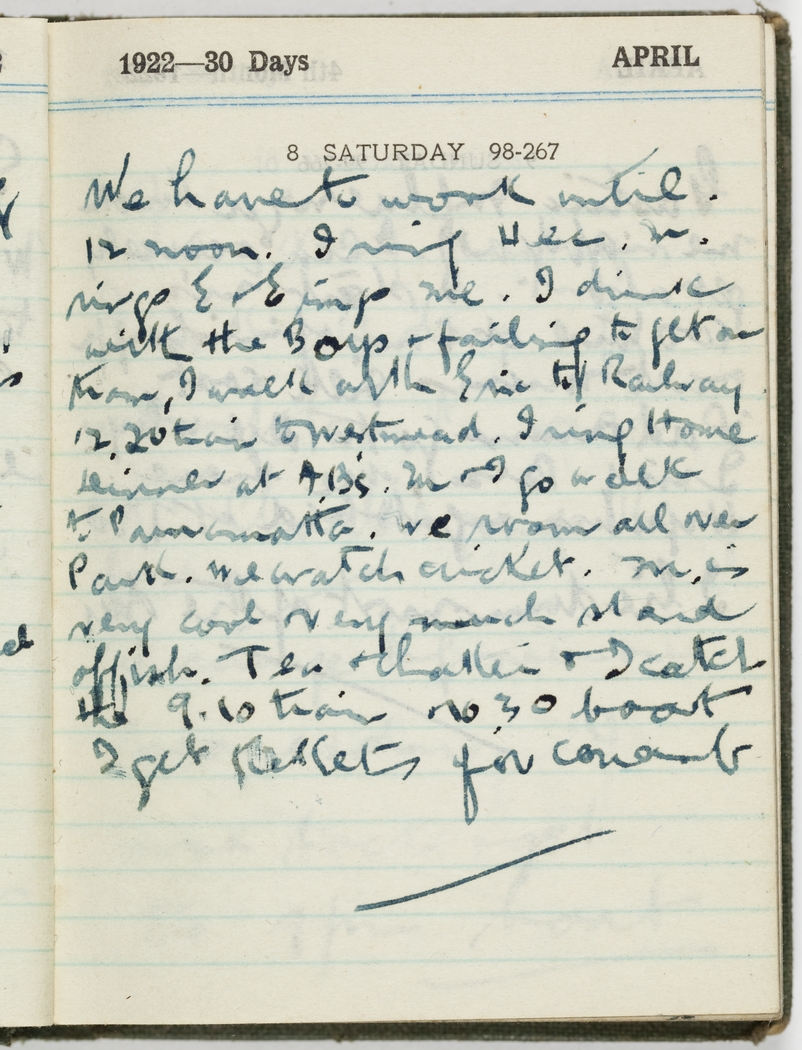 1922—30 Days APRIL
8 SATURDAY 98-267
We have to work until.
12 noon. I ring Hec. M.
rings E & E rings me. I drink
with the Boys & failing to get on
tram, I walk with Eric to Railway
12.20 train to Westmead. I ring Home
Dinner at A.B's. M & I go walk
to Parramatta. We roam all over
Park. We watch cricket. M. is
very cool & very much stand
offish. Tea & chatter & I catch
the 9.10 train 10 30 boat
I get tickets for